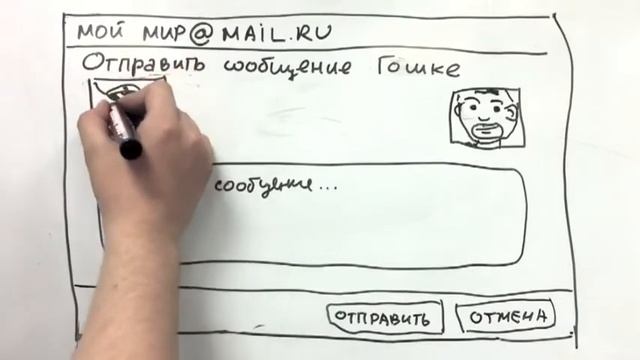 МОЙ МИР@MAIL.RU
Отправить сообщение Гошке
сообщение...
ОТПРАВИТЬ
ОТМЕНА